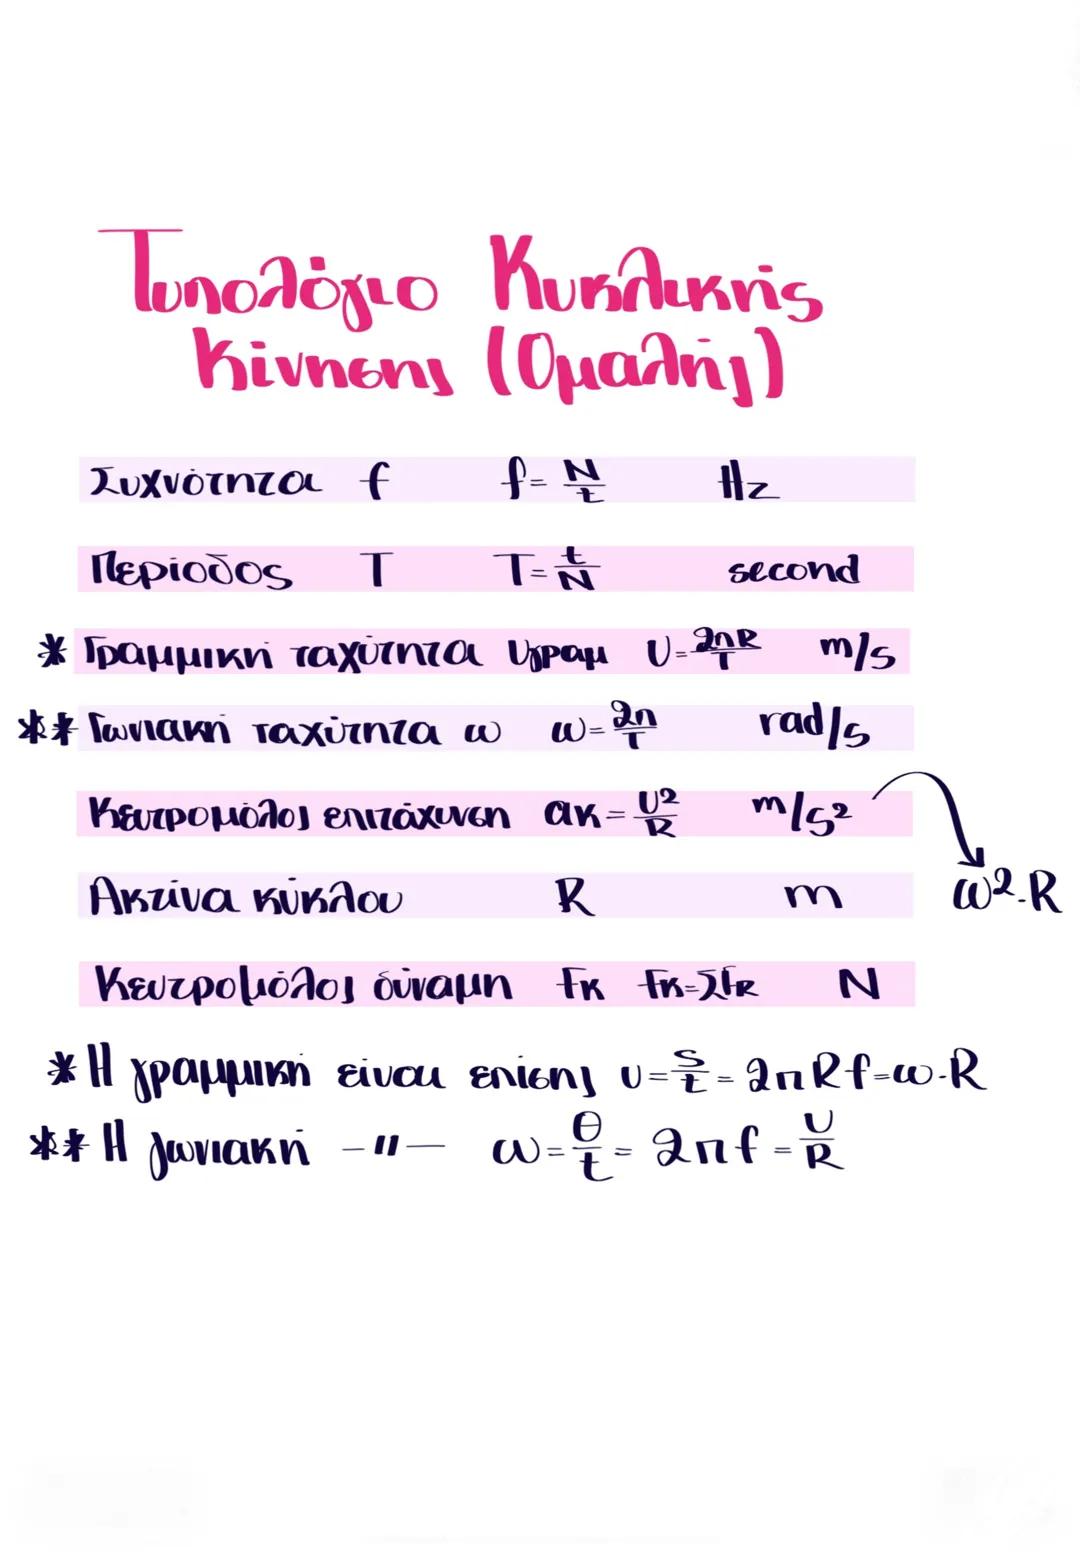 Τυπολόγιο Κυκλικής
Κίνησης (Ομαλής)
Συχνότητα f f = N/t Hz
Περίοδος T T = t/N second
* Γραμμική ταχύτητα υγραμ υ = 2πR/T m/s
** Γωνιακή ταχύτητα ω ω = 2π/T rad/s
Κεντρομόλος επιτάχυνση ακ = υ²/R m/s²
Ακτίνα κύκλου R m ω²·R
Κεντρομόλος δύναμη Fκ Fκ = ΣFR N
* Η γραμμική είναι επίσης υ = s/t = 2πRf = ω·R
** Η γωνιακή –〃– ω = θ/t = 2πf = υ/R